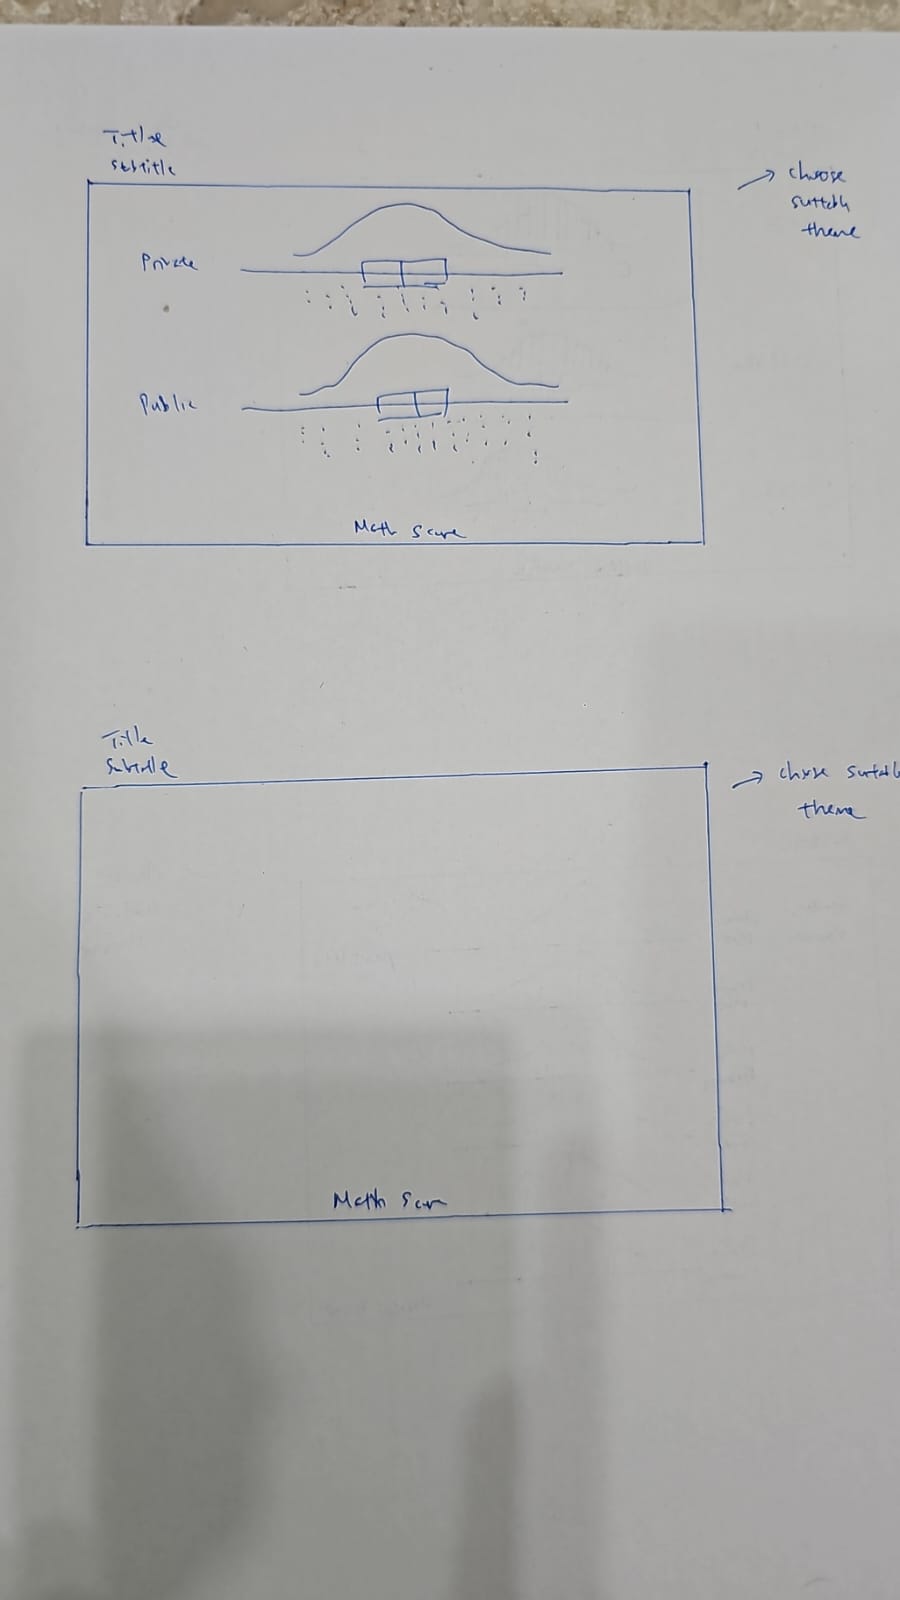 Title
Subtitle
choose
suitable
theme
Private
Public
Math Score
Title
Subtitle
choose suitable
theme
Math Score